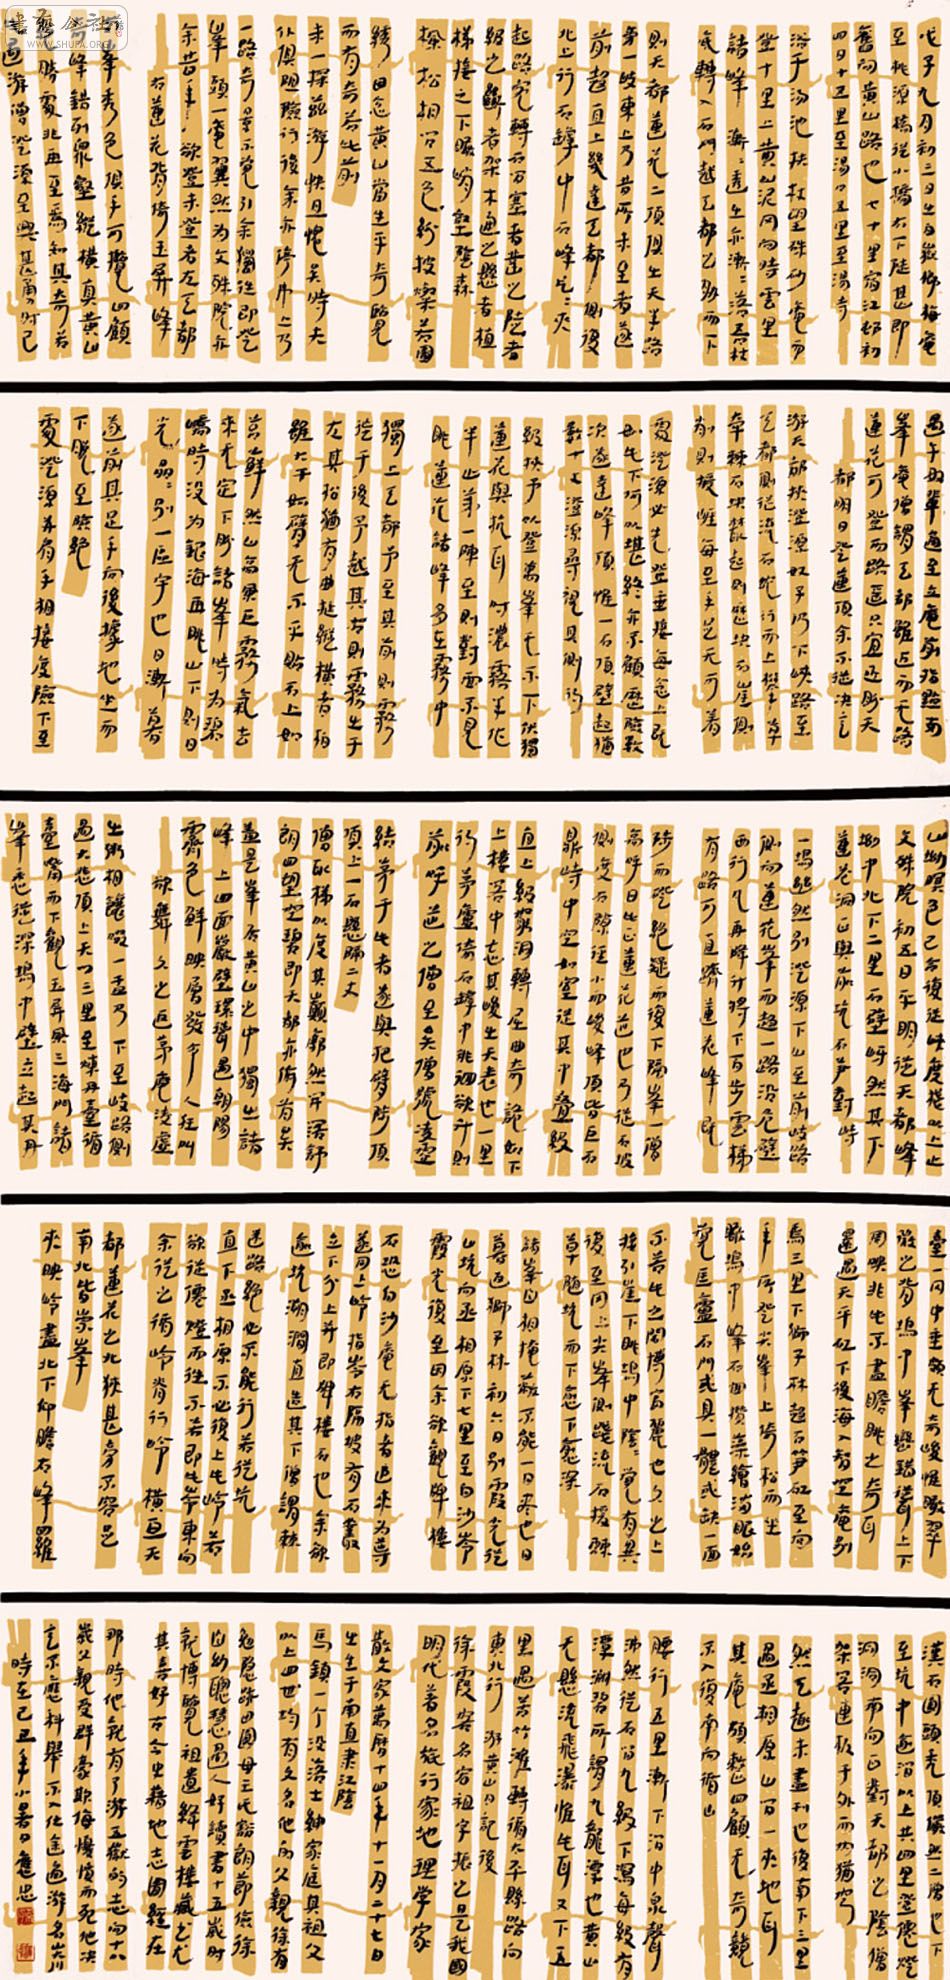 戊子九月初三日出白嶽榔梅庵
至桃源橋從小橋右下陡甚即
舊向黃山路也七十里宿江邨初
四日十五里至湯口五里至湯寺
浴于湯池扶杖望硃砂庵而
登十里上黃山泥岡向時雲里
諸峰漸漸透出亦漸漸落吾杖
底轉入石門越天都之脅而下
則天都蓮花二頂俱出天半路
旁一岐東上乃昔所未至者遂
前趨直上幾達天都側復
北上行石罅中石峰片片夾
起路宛轉石間塞者鑿之陡者
級之斷者架木通之懸者植
梯接之下瞰峭壑陰森
楓松相間五色紛披燦若圖
繡因念黃山當生平奇覽
而有奇若此前
未一探茲游快且愧矣時夫
僕俱阻險行後余亦停弗上乃
一路奇景不覺引余獨往即登
峯頭一庵翼然為文殊院亦
余昔年欲登未登者左天都
右蓮花背倚玉屏峰
兩峯秀色俱手可攬四顧
奇峰錯列眾壑縱橫真黃山
絕勝處非再至焉知其奇若
此遇游僧澄源至興甚勇時已
過午奴輩適至立庵前指點兩
峯庵僧謂天都雖近而無路
蓮花可登而路遙只宜近盼天
都明日登蓮頂余不從決意
游天都挾澄源奴子仍下峽路至
天都側從流石蛇行而上攀草
牽棘石塊叢起則歷塊石崖側
削則援崖每至手足無可著
處澄源必先登垂接每念上既
如此下何以堪終亦不顧歷險數
次遂達峰頂惟一石頂壁起猶
數十丈澄源尋視其側得
級挾予以登萬峯無不下伏獨
蓮花與抗耳時濃霧半作
半止每一陣至則對面不見
眺蓮花諸峰多在霧中
獨上天都予至其前則霧
徙于後予越其右則霧出于
左其松猶有曲挺縱橫者柏
雖大干如臂無不平貼石上如
苔蘚然山高風巨霧氣去
來無定下盼諸峯時出為碧
嶠時沒為銀海再眺山下則日
光晶晶別一區宇也日漸暮
遂前其足手向後據地坐而
下脫至險絕
處澄源并肩手相接度險下至
山坳暝色已合復從峽度棧以上止
文殊院初五日平明從天都峰
坳中北下二里石壁岈然其下
蓮花洞正與前坑石笋對峙
一塢幽然別澄源下山至前岐路
側向蓮花峯而趨一路沿危壁
西行凡再降升將下百步雲梯
有路可直躋蓮花峰既
陟而磴絕疑而復下隔峯一僧
高呼曰此正蓮花道也乃從石坡
側度石隙徑小而峻峰頂皆巨石
鼎峙中空如室從其中疊級
直上級窮洞轉屈曲奇詭如下
上樓閣中忘其峻出天表也一里
得茅廬倚石罅中徘徊欲升則
前呼道之僧至矣僧號凌空
結茅于此者遂與把臂陟頂
頂上一石懸隔二丈
僧取梯以度其巔廓然
朗四望空碧即天都亦俯首矣
蓋是峯居黃山之中獨出諸
峰上四面巖壁環聳遇朝陽
霽色鮮映層發令人狂叫
欲舞久之返茅庵凌虛
出粥相餉啜一盂乃下至岐路側
過大悲頂上天門三里至煉丹臺循
臺嘴而下觀玉屏風三海門諸
峯悉從深塢中壁立起其丹
臺一岡中垂頗無奇峻惟瞰翠
微之背塢中峯巒錯聳上下
周映非此不盡瞻眺之奇耳
還過平天矼下後海入智空庵別
焉三里下獅子林趨石笋矼至向
年所登尖峯上倚松而坐
瞰塢中峰石迴攢藻繢滿眼始
覺匡廬石門或具一體或缺一面
不若此之閎博富麗也久之上
接引崖下眺塢中陰陰覺有異
復至岡上尖峯側踐流石援棘
草隨坑而下愈下愈深
諸峯自相掩蔽不能一目盡也日
暮返獅子林初六日別霞光從
山坑向丞相原下七里至白沙岭
霞光復至因余欲觀牌樓
石恐白沙庵無指者追來為導
遂同上岭指岭右隔坡有石叢
立下分上并即牌樓石也余欲
逾坑溯澗直造其下僧謂棘
迷路絕必不能行若從坑
直下丞相原不必復上此岭若
欲從僊燈而往不若即此岭東向
余從之循岭脊行岭橫亘天
都蓮花之北狹甚旁不容足
南北皆崇峯
夾映岭盡北下仰瞻右峰羅
漢石圓頭禿頂儼然二僧也下
至坑中逾澗以上共四里登僊燈
洞洞南向正對天都之陰僧
架閣連板于外而内猶穹
然天趣未盡刊也復南下三里
過丞相原山間一夾地耳
其庵頗整四顧無奇競
不入復南向循山
腰行五里漸下澗中泉聲
沸然從石間九級下瀉每級有
潭淵碧所謂九龍潭也黃山
無懸流飛瀑惟此耳又下五
里過苦竹灘轉循太平縣路向
東北行 游黃山日記後
徐霞客名宏祖字振之是我國
明代著名旅行家地理学家
散文家萬曆十四年十一月二十七日
出生于南直隶江陰
馬鎮一个没落士紳家庭其祖父
以上四世均有文名他的父親徐有
勉隐跡田園母王氏豁朗節儉徐
自幼聰慧過人好讀書十五歲時
就博覽祖遺絳雲樓藏書尤
其喜好古今史籍地志圖經在
那時他就有了游五嶽的志向十八
歲父親受群豪欺侮憤憤而死他决
意不應科舉不入仕途遍游名山川
時在己丑年小暑日應忠
書藝公社
WWW.SHUFA.ORG